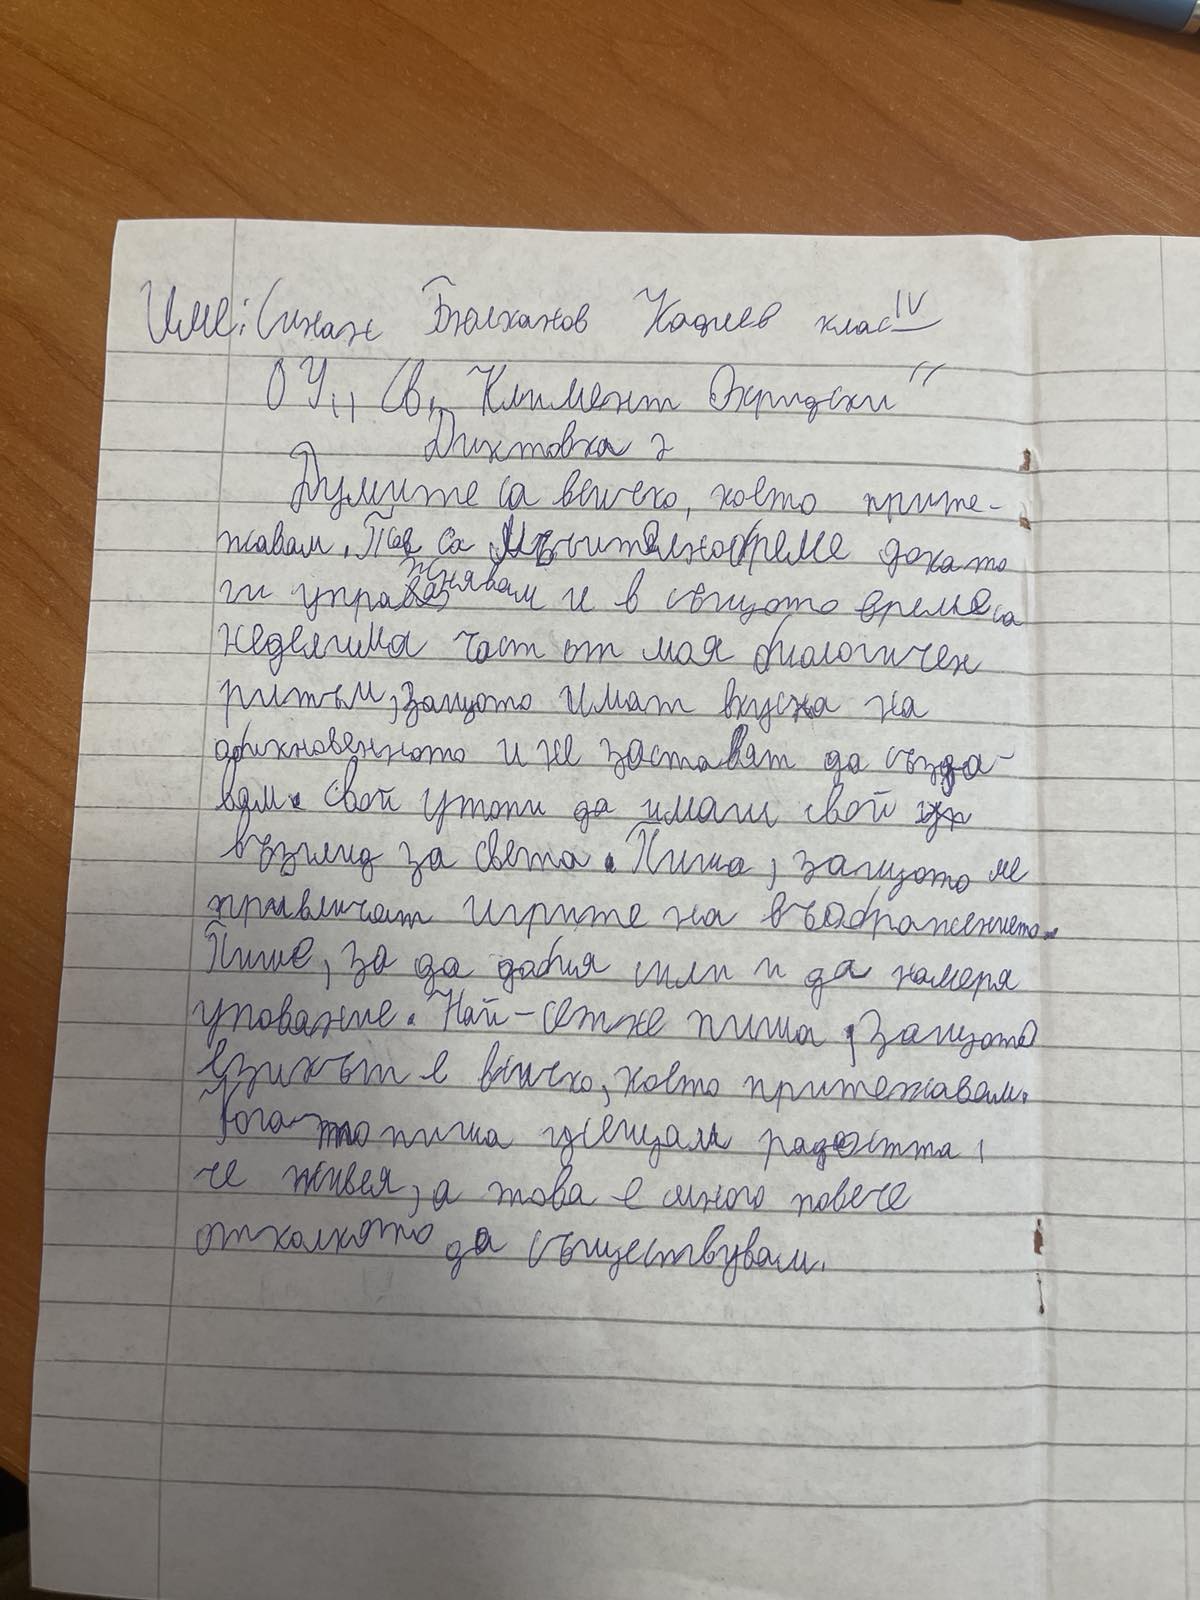 Име: Синан Бюлханов Кадиев клас IV
ОУ „ Св. Климент Охридски"
Диктовка 2
Думите са всичко, което прите-
жавам. Те са мъчителнобреме докато
ги упражнявам и в същото време са
неделима част от мая биологичен
ритъм, защото имат вкуса на
обикновенното и не заставят да създа-
вам. свой утопи да имаш свой
възглид за света. Пиша, защото ме
привличат игрите на въображението.
Пише, за да добия сили и да намеря
упование. Най-сетне пиша, защото
езикът е всичко, което притежавам.
Когато пиша усещам радостта,
че живея, а това е много повече
отколкото да съществувам.